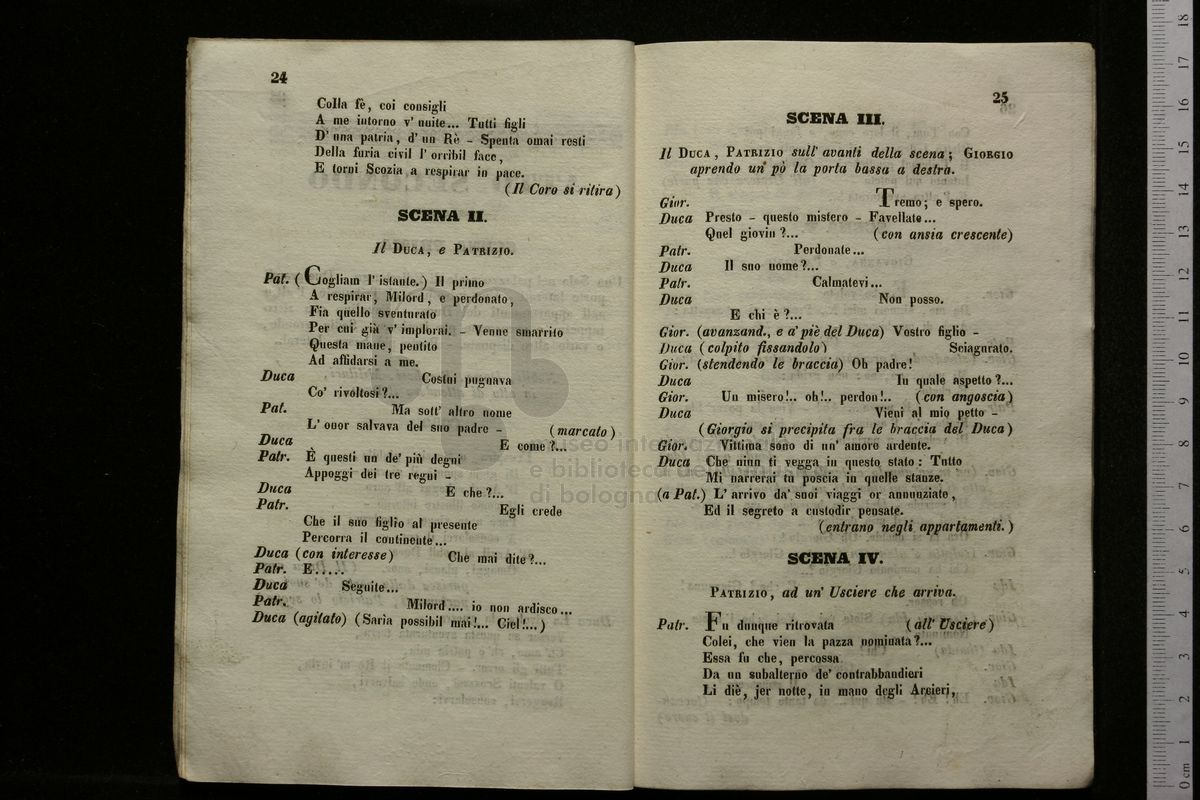 24
Colla fè, coi consigli
A me intorno v' unite... Tutti figli
D' una patria, d' un Rè - Spenta omai resti
Della furia civil l' orribil face,
E torni Scozia a respirar in pace.
(Il Coro si ritira)
SCENA II.
Il DUCA, e PATRIZIO.
Pat. (Cogliam l' istante.) Il primo
A respirar, Milord, e perdonato,
Fia quello sventurato
Per cui già v' implorai. - Venne smarrito
Questa mane, pentito
Ad affidarsi a me.
Duca Costui pugnava
Co' rivoltosi?...
Pat. Ma sott' altro nome
L' onor salvava del suo padre - (marcato)
Duca E come?...
Patr. È questi un de' più degni
Appoggi dei tre regni -
Duca E che?...
Patr. Egli crede
Che il suo figlio al presente
Percorra il continente...
Duca (con interesse) Che mai dite?...
Patr. E.....
Duca Seguite...
Patr. Milord.... io non ardisco...
Duca (agitato) (Saria possibil mai!... Ciel!...)
25
SCENA III.
Il DUCA, PATRIZIO sull' avanti della scena; GIORGIO
aprendo un pò la porta bassa a destra.
Gior. Tremo; e spero.
Duca Presto - questo mistero - Favellate...
Quel giovin?... (con ansia crescente)
Patr. Perdonate...
Duca Il suo nome?...
Patr. Calmatevi...
Duca Non posso.
E chi è?...
Gior. (avanzand., e a' piè del Duca) Vostro figlio -
Duca (colpito fissandolo) Sciagurato.
Gior. (stendendo le braccia) Oh padre!
Duca In quale aspetto?...
Gior. Un misero!.. oh!.. perdon!.. (con angoscia)
Duca Vieni al mio petto -
(Giorgio si precipita fra le braccia del Duca)
Gior. Vittima sono di un' amore ardente.
Duca Che niun ti vegga in questo stato: Tutto
Mi narrerai tu poscia in quelle stanze.
(a Pat.) L' arrivo da' suoi viaggi or annunziate,
Ed il segreto a custodir pensate.
(entrano negli appartamenti.)
SCENA IV.
PATRIZIO, ad un' Usciere che arriva.
Patr. Fu dunque ritrovata (all' Usciere)
Colei, che vien la pazza nominata?...
Essa fu che, percossa
Da un subalterno de' contrabbandieri
Li diè, jer notte, in mano degli Arcieri,
museo internazionale
e biblioteca della musica
di bologna
0 cm 1 2 3 4 5 6 7 8 9 10 11 12 13 14 15 16 17 18